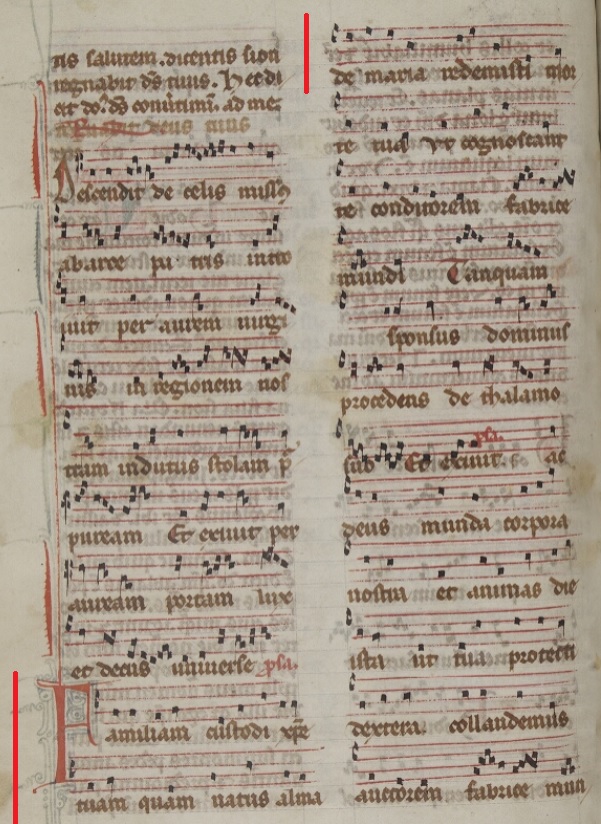 tis salutem. dicentis sion
regnabit ds tuus. Et di
et do. ds convitimi. ad me
deus tuus
Descendit de celis missus
ab arce pa tris intro
iuit per aurem uirgi
nis in regionem nos
tram indutus stolam pur
puream Et exiuit per
auream portam lux
et decus uniuerse psa.
Familiam custodi xpe
tuam quam natus alma
de maria redemisti mor
te tua ut cognoscant
te conditorem fabrice
mundi Tanquam
sponsus dominus
procedens de thalamo
suo Et exiuit. psa. ac
deus munda corpora
nostra et animas die
ista ut tua protecti
dextera collaudemus
auctorem fabrice mun